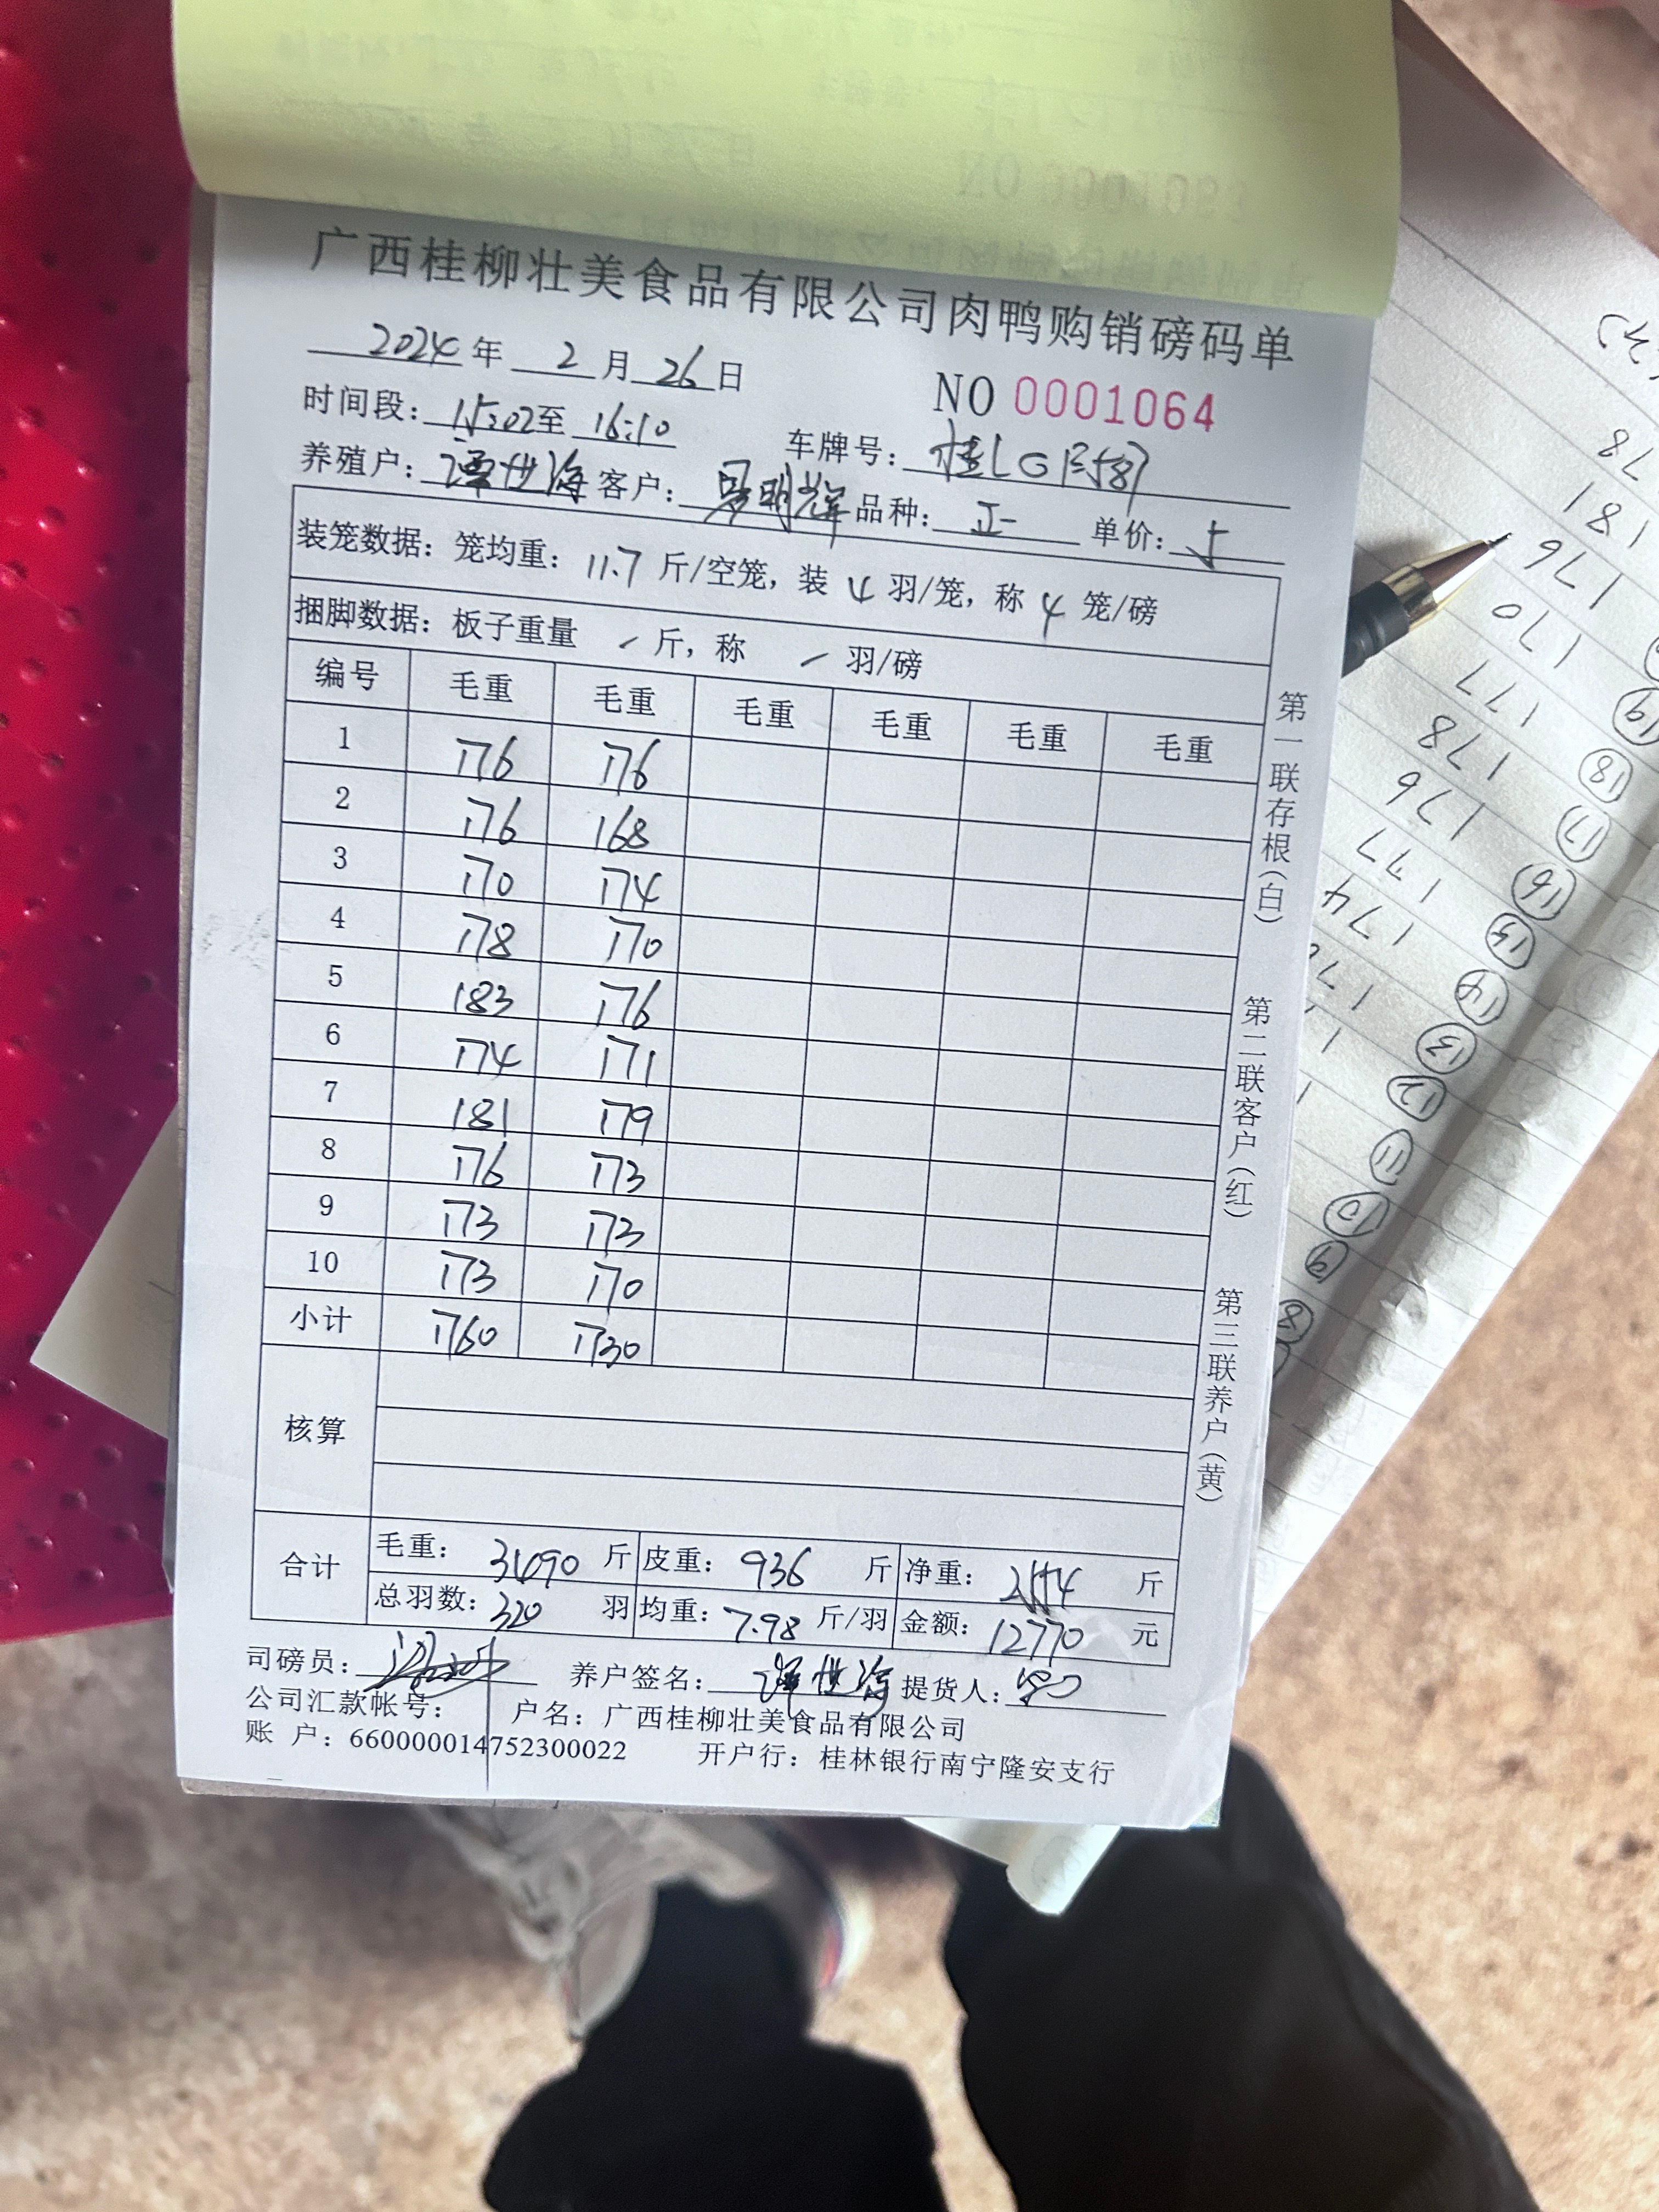 广西桂柳壮美食品有限公司肉鸭购销磅码单
2024年 2月26日
NO 0001064
时间段：15:02至 16:10
车牌号：桂L
养殖户：谭世海 客户：罗明辉 品种：正 单价：5
装笼数据：笼均重：11.7斤/空笼，装 4 羽/笼，称 4 笼/磅
捆脚数据：板子重量 / 斤，称 / 羽/磅
编号 毛重 毛重 毛重 毛重 毛重 毛重
1 176 176
2 176 168
3 170 174
4 178 170
5 183 176
6 174 171
7 181 179
8 176 173
9 173 173
10 173 170
小计 1760 1730
核算
合计 毛重：3490 斤 皮重：936 斤 净重：2554 斤
总羽数：320 羽 均重：7.98 斤/羽 金额：12770 元
司磅员： 养户签名：谭世海 提货人：
公司汇款帐号： 户名：广西桂柳壮美食品有限公司
账 户：660000014752300022 开户行：桂林银行南宁隆安支行
第一联存根（白） 第二联客户（红） 第三联养户（黄）
178
181
176
170
177
178
176
177
174
19
18
17
16
15
14
13
12
11
10
9
8